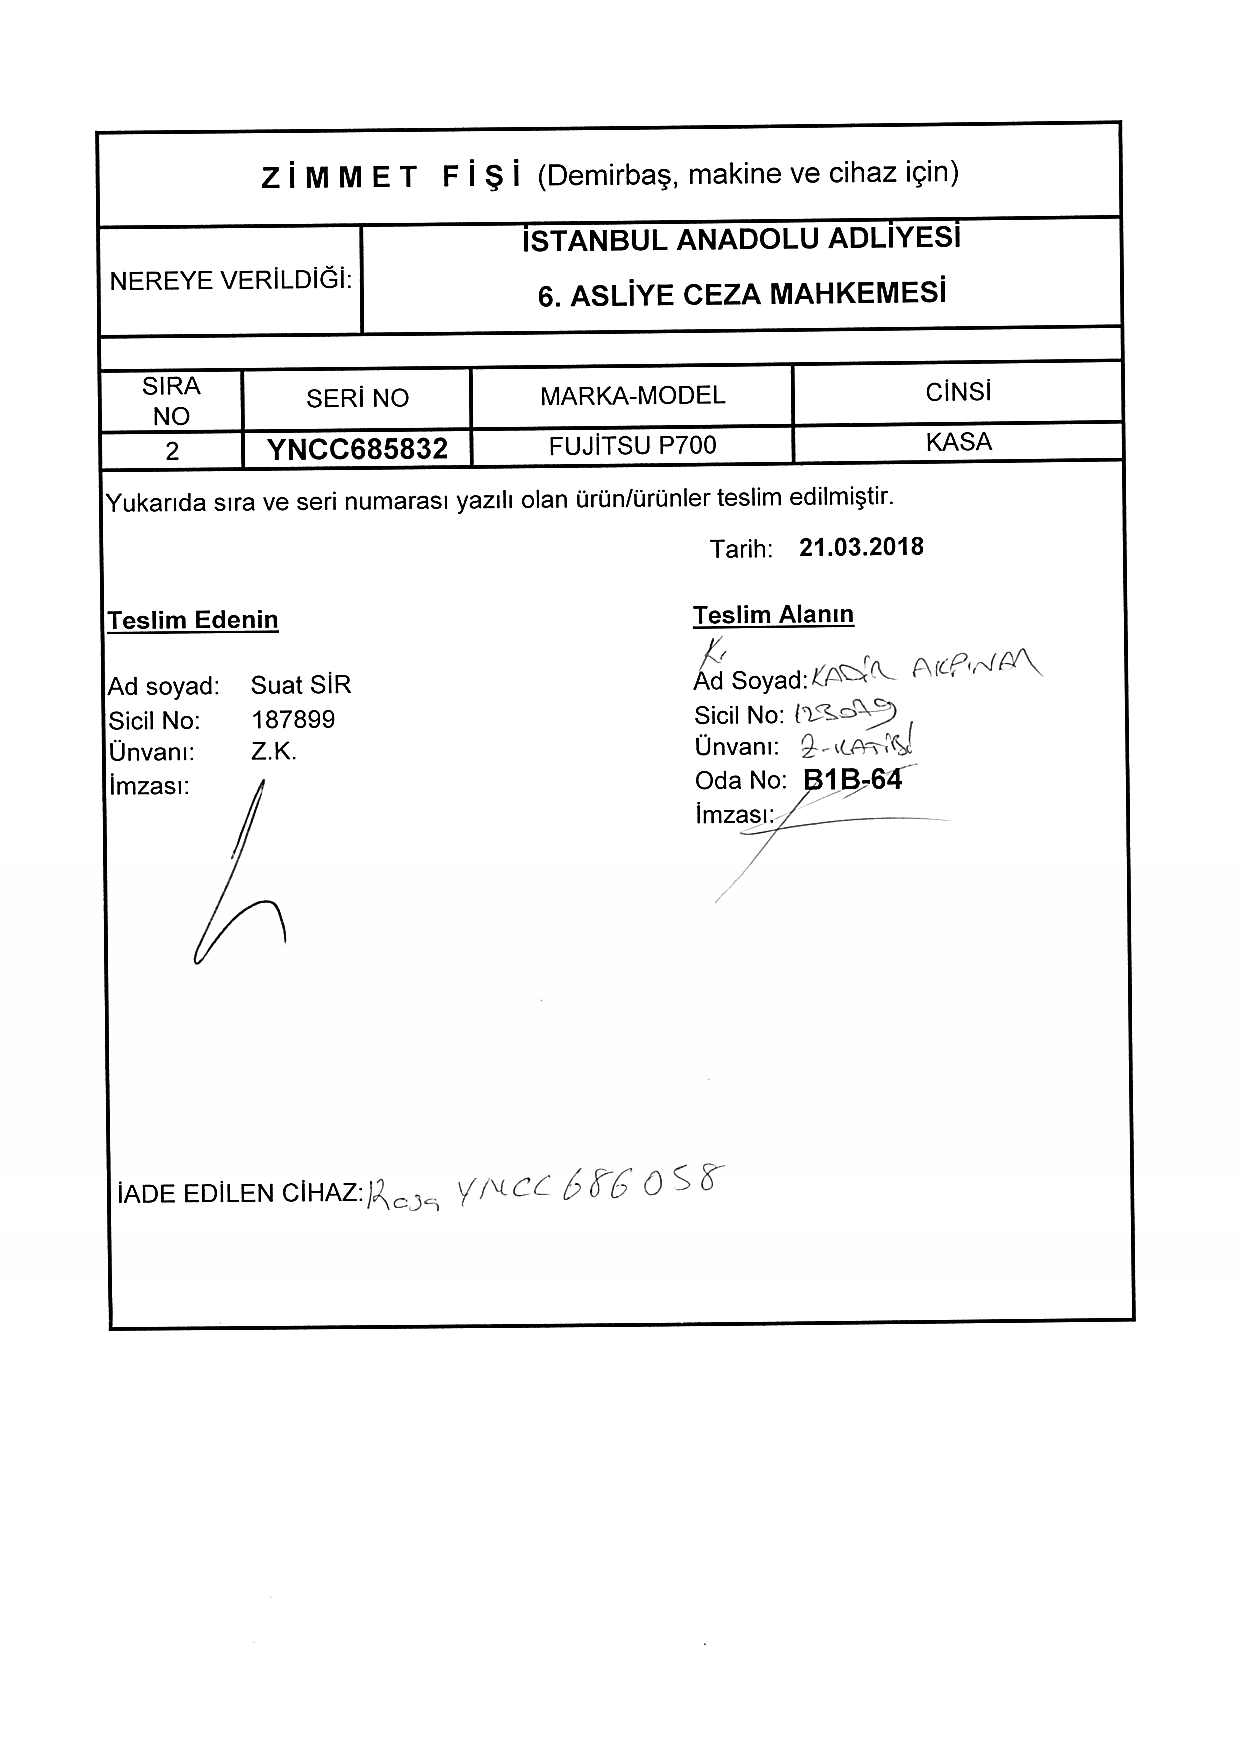 ZİMMET FİŞİ (Demirbaş, makine ve cihaz için)
NEREYE VERİLDİĞİ:
İSTANBUL ANADOLU ADLİYESİ
6. ASLİYE CEZA MAHKEMESİ
SIRA NO SERİ NO MARKA-MODEL CİNSİ
2 YNCC685832 FUJİTSU P700 KASA
Yukarıda sıra ve seri numarası yazılı olan ürün/ürünler teslim edilmiştir.
Tarih: 21.03.2018
Teslim Edenin
Ad soyad: Suat SİR
Sicil No: 187899
Ünvanı: Z.K.
İmzası:
Teslim Alanın
Ad Soyad: KADİR AKPINAR
Sicil No:
Ünvanı: Z-KATİBİ
Oda No: B1B-64
İmzası:
İADE EDİLEN CİHAZ: Kasa YNCC686058